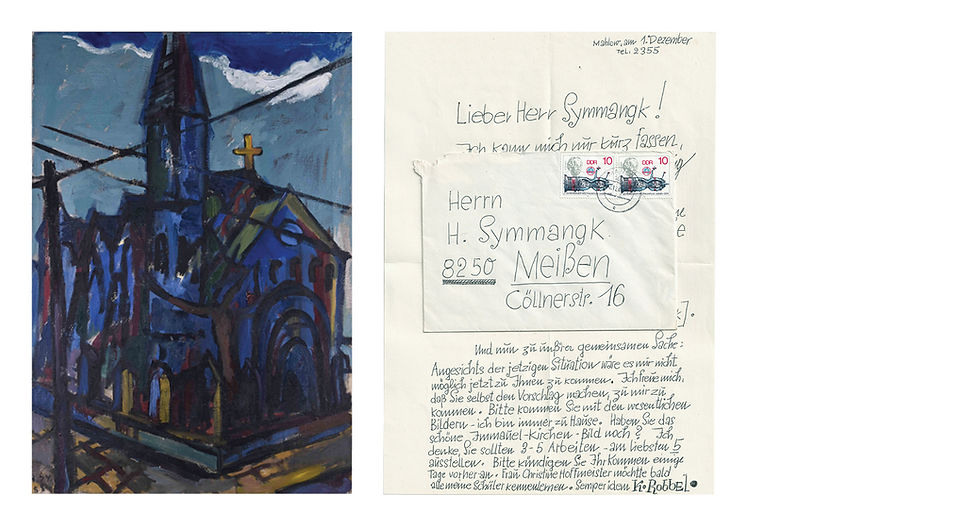 Mahlow, am 1. Dezember
Tel. 2355
Lieber Herr Symmangk!
Ich kann mich nur kurz fassen,
DDR 10 DDR 10
Herrn
H. Symmangk
8250 Meißen
Cöllnerstr. 16
Und nun zu unsrer gemeinsamen Sache:
Angesichts der jetzigen Situation wäre es mir nicht
möglich jetzt zu Ihnen zu kommen. Ich freue mich,
daß Sie selbst den Vorschlag machen, zu mir zu
kommen. Bitte kommen Sie mit den wesentlichen
Bildern - ich bin immer zu Hause. Haben Sie das
schöne Immanuel-Kirchen-Bild noch? Ich
denke, Sie sollten 3-5 Arbeiten - am liebsten 5
ausstellen. Bitte kündigen Sie Ihr Kommen einige
Tage vorher an. Frau Christine Hoffmeister möchte bald
alle meine Schüler kennenlernen. Semper idem K. Robbel.